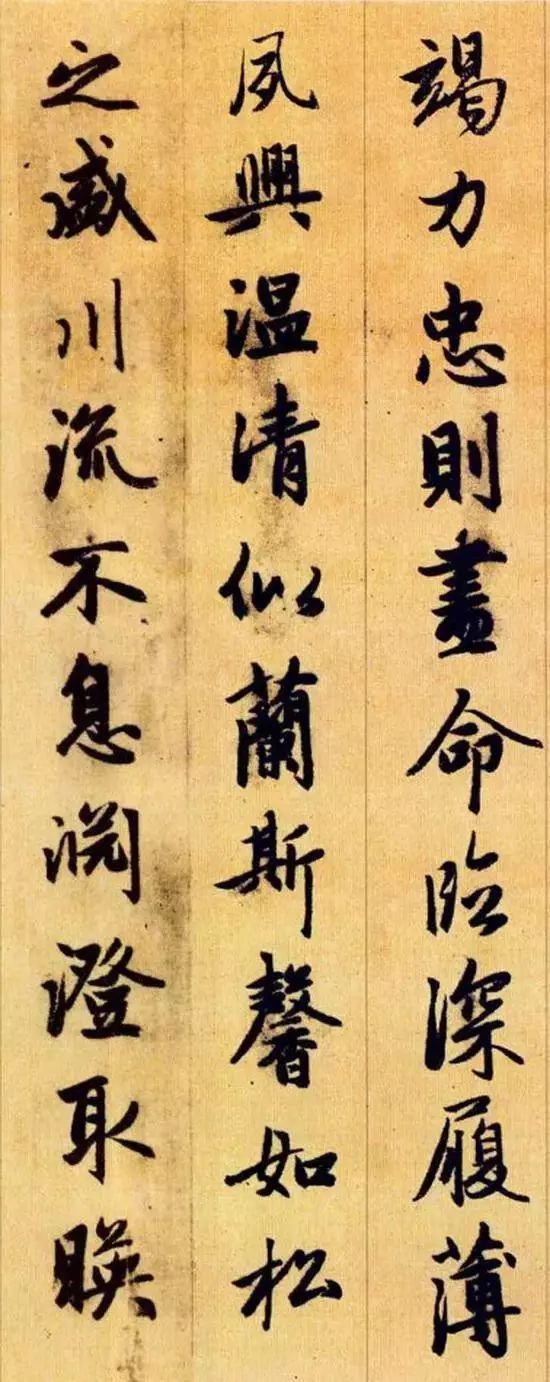 竭力忠則盡命臨深履薄
夙興温清似蘭斯馨如松
之盛川流不息淵澄取暎